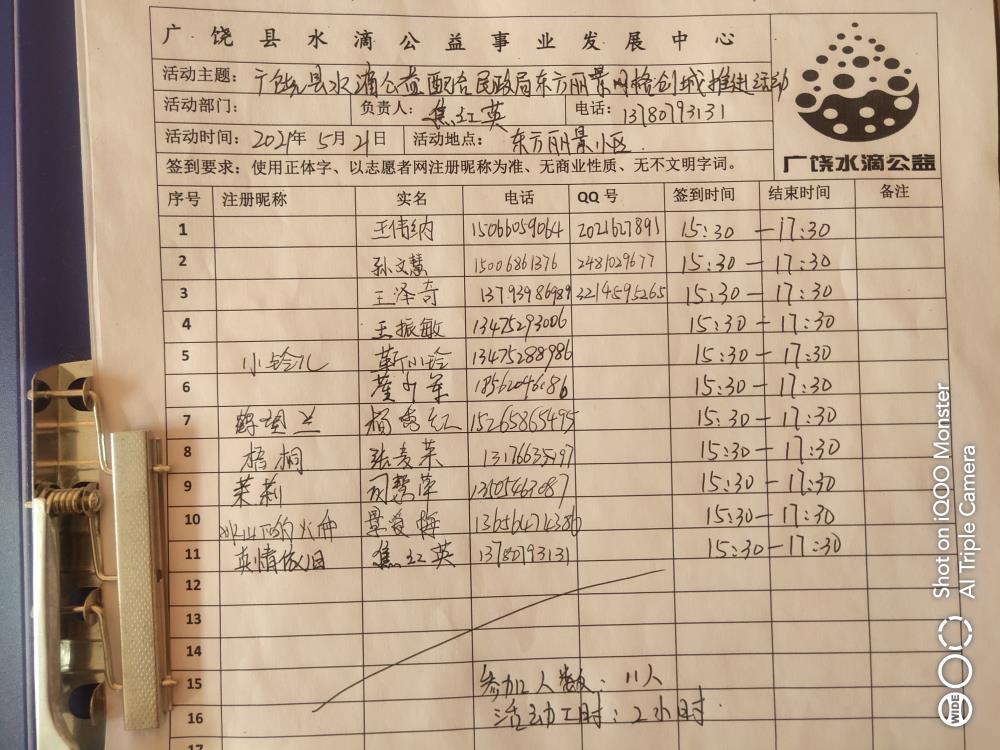 广饶县水滴公益事业发展中心
活动主题: 广饶县水滴公益配合民政局东方丽景网格创城推进活动
活动部门: 负责人: 焦红英 电话: 13780793131
活动时间: 2021年 5月 21日 活动地点: 东方丽景小区
签到要求: 使用正体字、以志愿者网注册昵称为准、无商业性质、无不文明字词。
广饶水滴公益
序号 注册昵称 实名 电话 QQ 号 签到时间 结束时间 备注
1 王伟纳 15066059064 2021627891 15:30 — 17:30
2 孙文慧 15006861376 2481029677 15:30 — 17:30
3 王泽奇 13793986989 3214595265 15:30 — 17:30
4 王振敏 13475293006 15:30 — 17:30
5 小铃儿 靳小玲 13475288986 15:30 — 17:30
6 15:30 — 17:30
7 鹤望兰 杨秀红 15265865475 15:30 — 17:30
8 梧桐 张麦荣 15:30 — 17:30
9 茉莉 13505463087 15:30 — 17:30
10 13656471386 15:30 — 17:30
11 真情依旧 焦红英 13780793131 15:30 — 17:30
12
13
14
15 参加人数: 11人
16 活动工时: 2小时
17
Shot on iQOO Monster
AI Triple Camera
WIDE